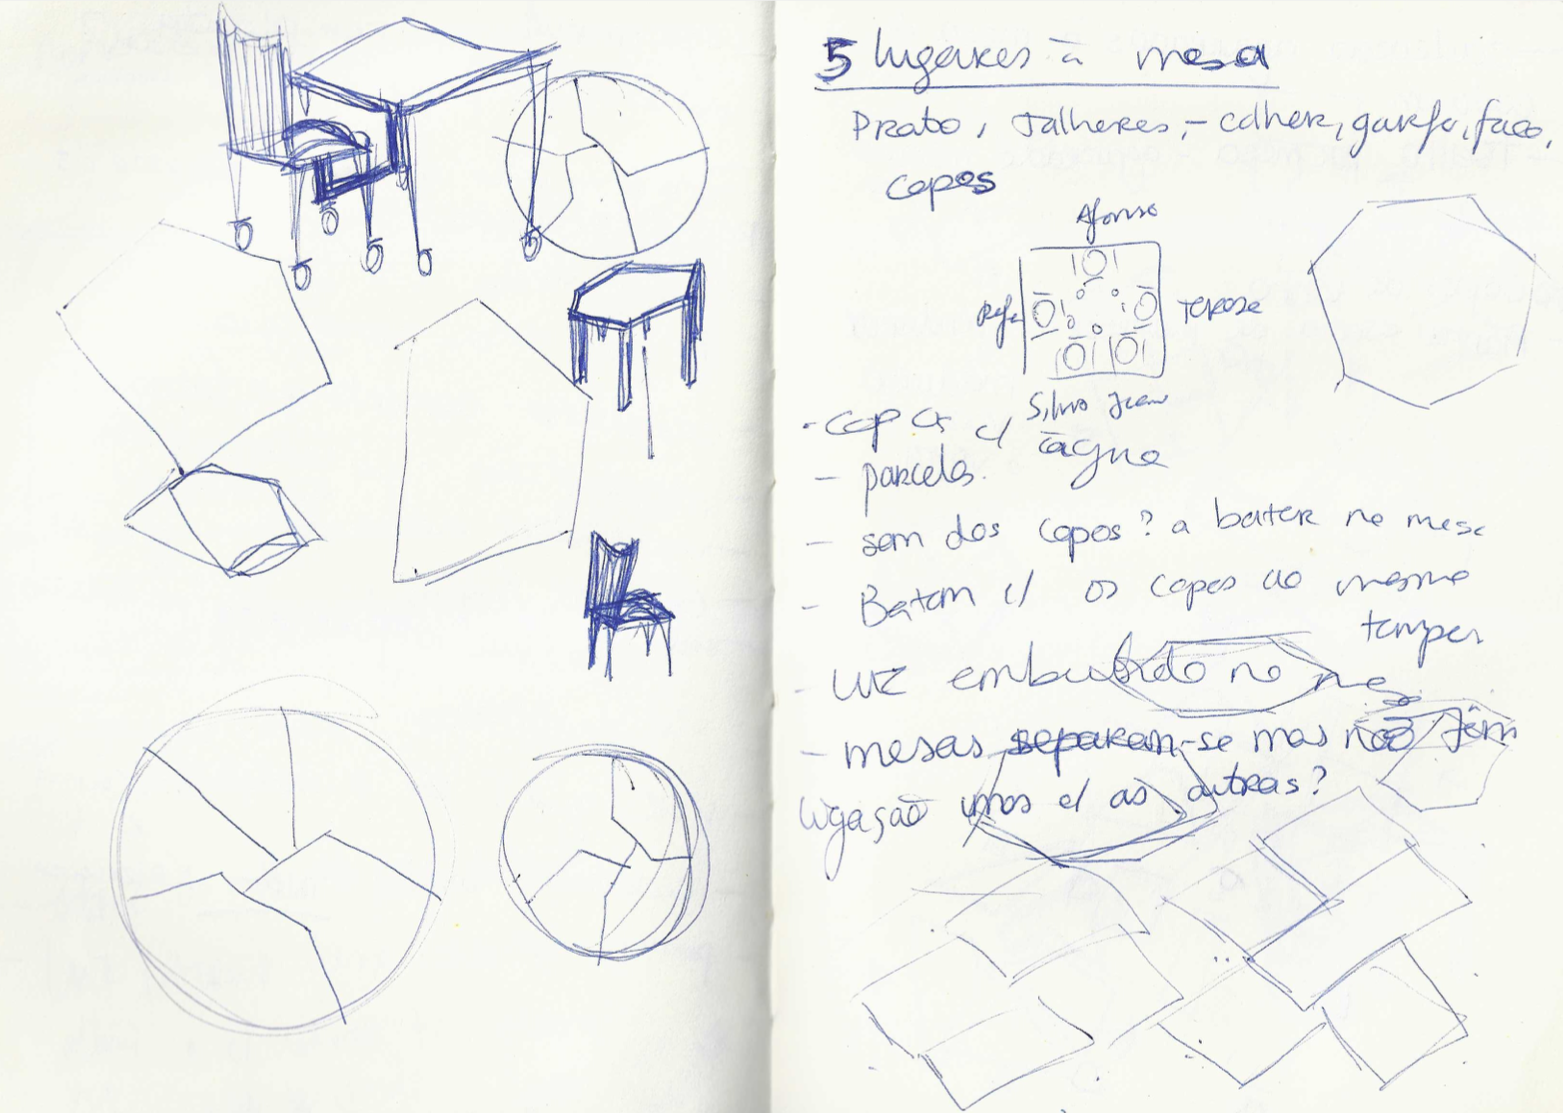 5 lugares à mesa
Prato, Talheres, - colher, garfo, faca,
copos
Afonso
Rafa Teresa
Silvia
- copos c/ água
- parcelas.
- som dos copos? a bater na mesa
- Batem c/ os copos ao mesmo
tempo
- luz embutida na mesa
- mesas separam-se mas não têm
ligação umas c/ as outras?